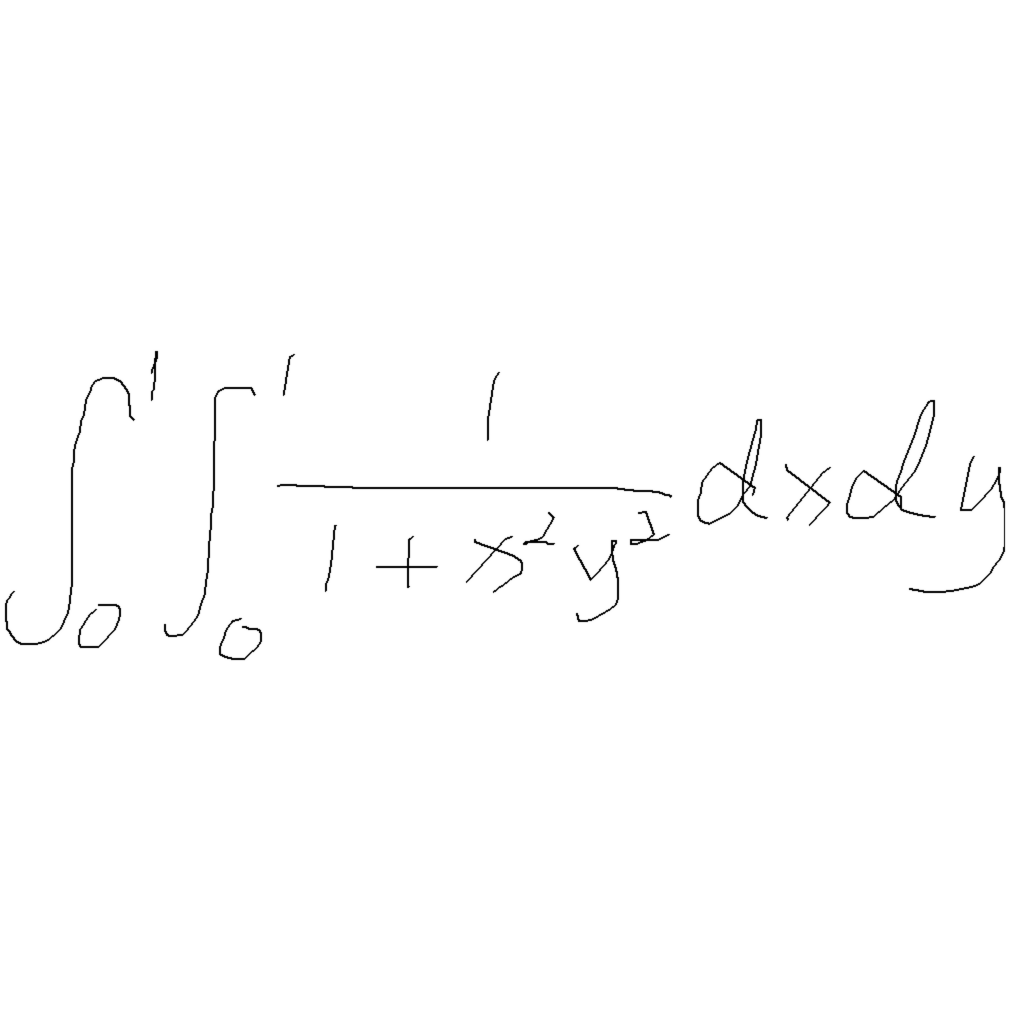 ∫₀¹ ∫₀¹ 1/(1 + x²y²) dx dy